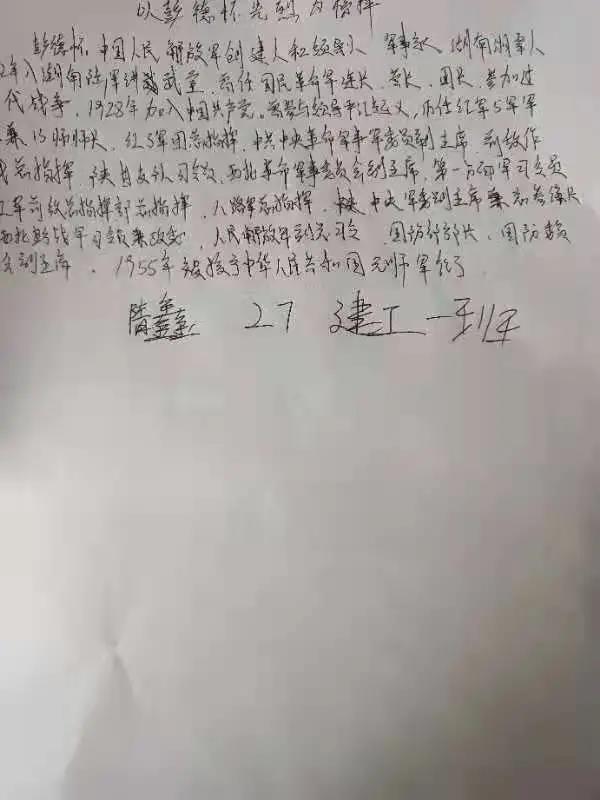 以彭德怀先烈为榜样
彭德怀，中国人民解放军创建人和领导人 军事家 湖南湘潭人
2年入湖南陆军讲武堂，历任国民革命军连长、营长、团长，参加过
代战争，1928年加入中国共产党，参与领导平江起义，历任红军5军军
兼13师师长，红3军团总指挥，中共中央革命军事委员副主席
总指挥，陕甘支队司令，西北革命军事委员会副主席，第一方面军司令员
红军前敌总指挥部总指挥，八路军总指挥，中央军委副主席兼总参谋长
西北野战军司令员兼政委，人民解放军副总司令，国防部部长，国防委
会副主席，1955年被授予中华人民共和国元帅军衔
隋鑫 27 建工一班